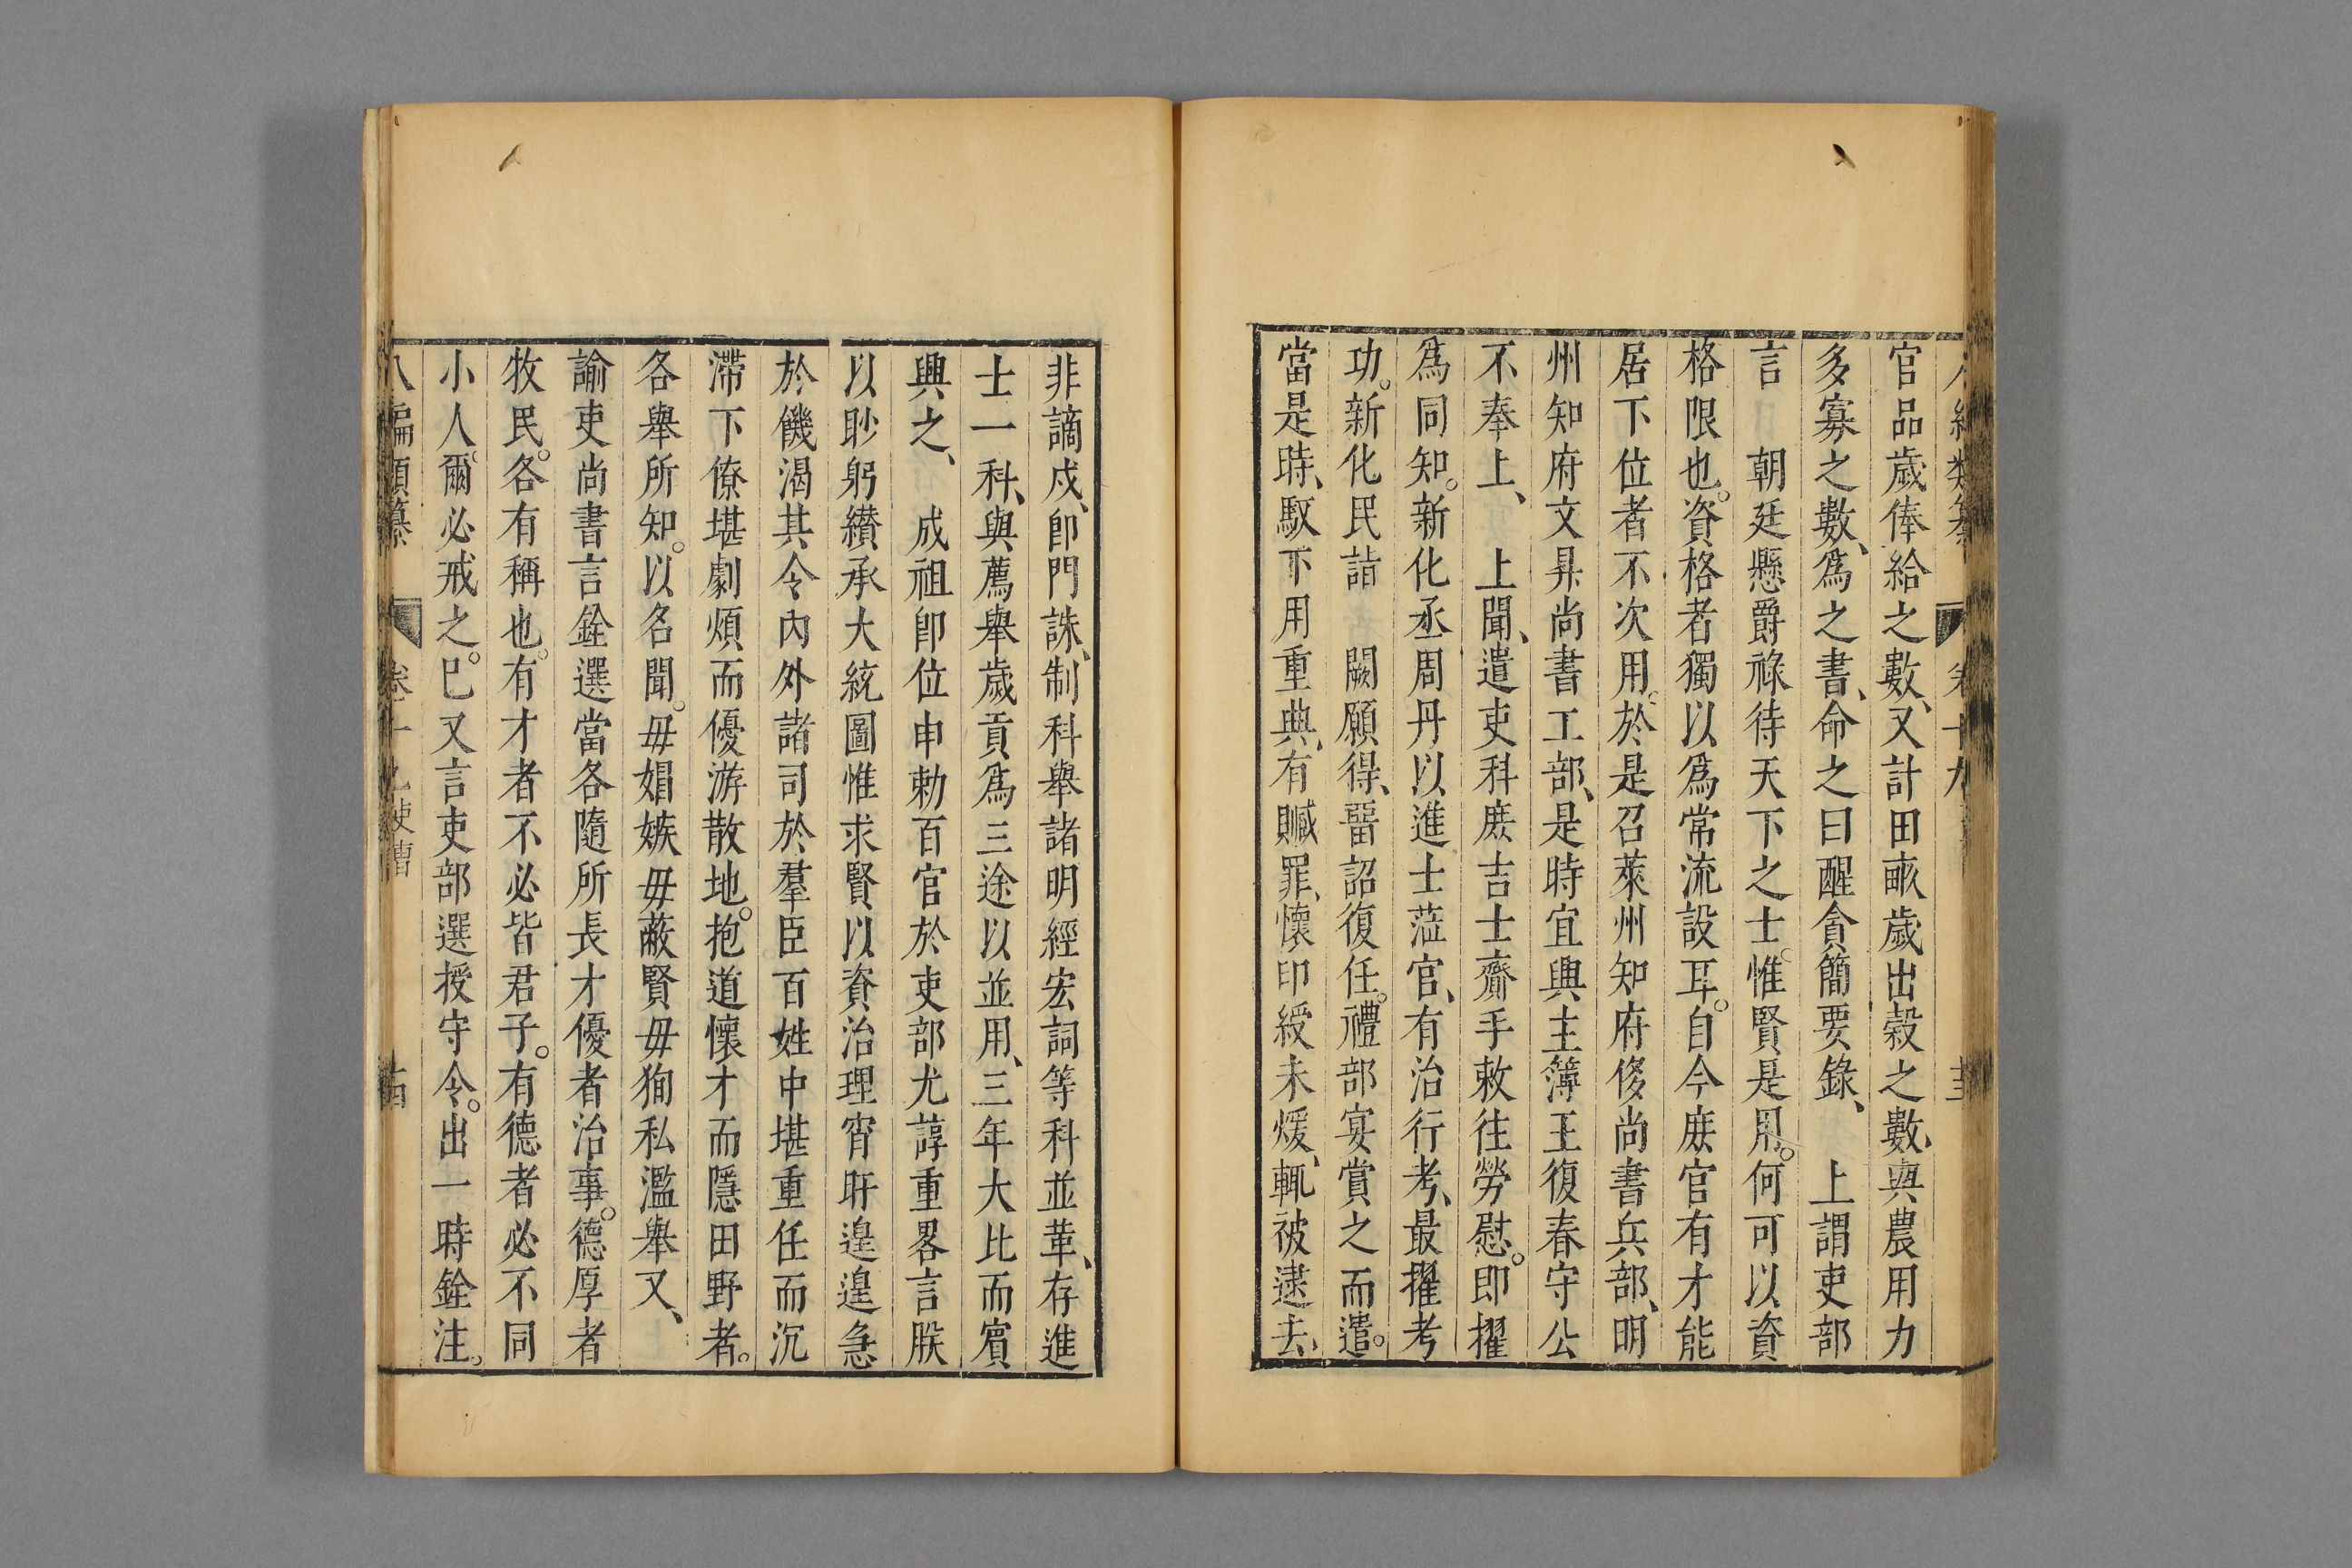 官品歲俸給之數、又計田畝歲出穀之數、與農用力
多寡之數、爲之書、命之曰醒貪簡要錄、　上謂吏部
言　朝廷懸爵祿待天下之士。惟賢是用。何可以資
格限也。資格者獨以爲常流設耳。自今庶官有才能
居下位者不次用。於是召萊州知府俊尚書兵部、明
州知府文昇尚書工部、是時宜興主簿王復春守公
不奉上、　上聞、遣吏科庶吉士齎手敕往勞慰。即擢
爲同知。新化丞周丹以進士蒞官、有治行考、最擢考
功。新化民詣　闕願得、畱詔復任。禮部宴賞之而遣。
當是時、馭下用重典、有贓罪、懷印綬未煖、輒被逮去、
非謫戍、卽門誅、制科舉諸明經宏詞等科並革、存進
士一科、與薦舉歲貢爲三途以並用、三年大比而賓
興之、　成祖卽位申勅百官於吏部尤諄重畧言朕
以眇躬纘承大統圖惟求賢以資治理宵旰遑遑急
於饑渴其令內外諸司於羣臣百姓中堪重任而沉
滯下僚堪劇煩而優游散地。抱道懷才而隱田野者。
各舉所知。以名聞。毋娼嫉毋蔽賢毋狥私濫舉又、
諭吏尚書言銓選當各隨所長才優者治事。德厚者
牧民。各有稱也。有才者不必皆君子。有德者必不同
小人。爾必戒之。巳又言吏部選授守令。出一時銓注。
八編類纂　卷十九吏曹　十四